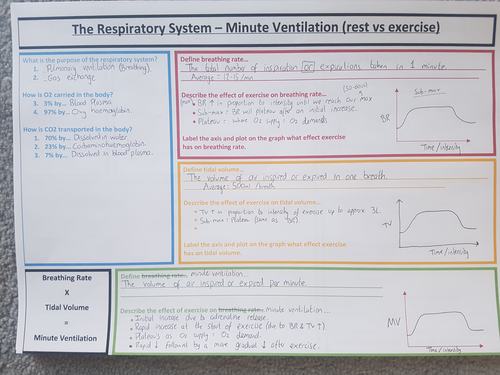 The Respiratory System – Minute Ventilation (rest vs exercise)
What is the purpose of the respiratory system?
1. Pulmonary ventilation (Breathing)
2. Gas exchange
How is O2 carried in the body?
3. 3% by... Blood Plasma
4. 97% by... Oxyhaemoglobin.
How is CO2 transported in the body?
1. 70% by... Dissolved in water
2. 23% by... Carbaminohaemoglobin.
3. 7% by... Dissolved in blood plasma.
Define breathing rate...
The total number of inspiration OR expirations taken in 1 minute.
Average = 12-15/min
Describe the effect of exercise on breathing rate...
BR ↑ in proportion to intensity until we reach our max
• Sub-max: BR will plateau after an initial increase.
• Plateau = where O2 supply = O2 demands
Label the axis and plot on the graph what effect exercise
has on breathing rate.
Sub-max
BR
Time/intensity
Define tidal volume...
The volume of air inspired or expired in one breath.
Average: 500ml/breath
Describe the effect of exercise on tidal volume...
• TV ↑ in proportion to intensity of exercise up to approx 3L
• Sub-max: Plateau
Label the axis and plot on the graph what effect exercise
has on tidal volume.
TV
Time/intensity
Breathing Rate
X
Tidal Volume
=
Minute Ventilation
Define breathing rate... minute ventilation...
The volume of air inspired or expired per minute.
Describe the effect of exercise on breathing rate... minute ventilation...
• Initial increase due to adrenaline release.
• Rapid increase at the start of exercise (due to BR & TV ↑)
• Plateaus as O2 supply = O2 demand.
• Rapid ↓ followed by a more gradual ↓ after exercise.
MV
Time/intensity